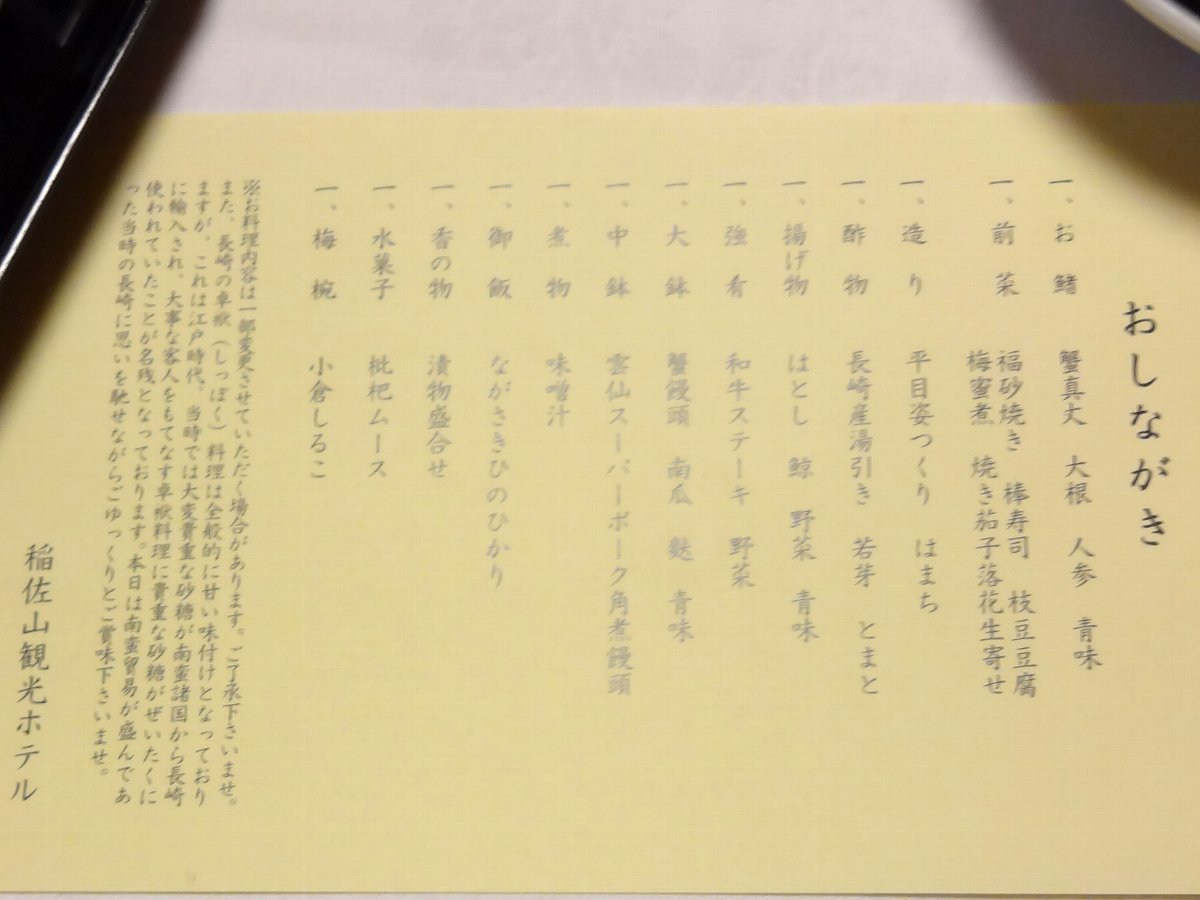 おしながき
一、お鰭 蟹真丈 大根 人参 青味
一、前菜 福砂焼き 棒寿司 枝豆豆腐
梅蜜煮 焼き茄子落花生寄せ
一、造り 平目姿つくり はまち
一、酢物 長崎産湯引き 若芽 とまと
一、揚げ物 はとし 鯨 野菜 青味
一、強肴 和牛ステーキ 野菜
一、大鉢 蟹饅頭 南瓜 麩 青味
一、中鉢 雲仙スーパーポーク角煮饅頭
一、煮物 味噌汁
一、御飯 ながさきひのひかり
一、香の物 漬物盛合せ
一、水菓子 枇杷ムース
一、梅椀 小倉しるこ
※お料理内容は一部変更させていただく場合があります。ご了承下さいませ。
また、長崎の卓袱（しっぽく）料理は全般的に甘い味付けとなっており
ますが、これは江戸時代、当時では大変貴重な砂糖が南蛮諸国から長崎
に輸入され、大事な客人をもてなす卓袱料理に貴重な砂糖がぜいたくに
使われていたことが名残となっております。本日は南蛮貿易が盛んであ
った当時の長崎に思いを馳せながらごゆっくりとご賞味下さいませ。
稲佐山観光ホテル